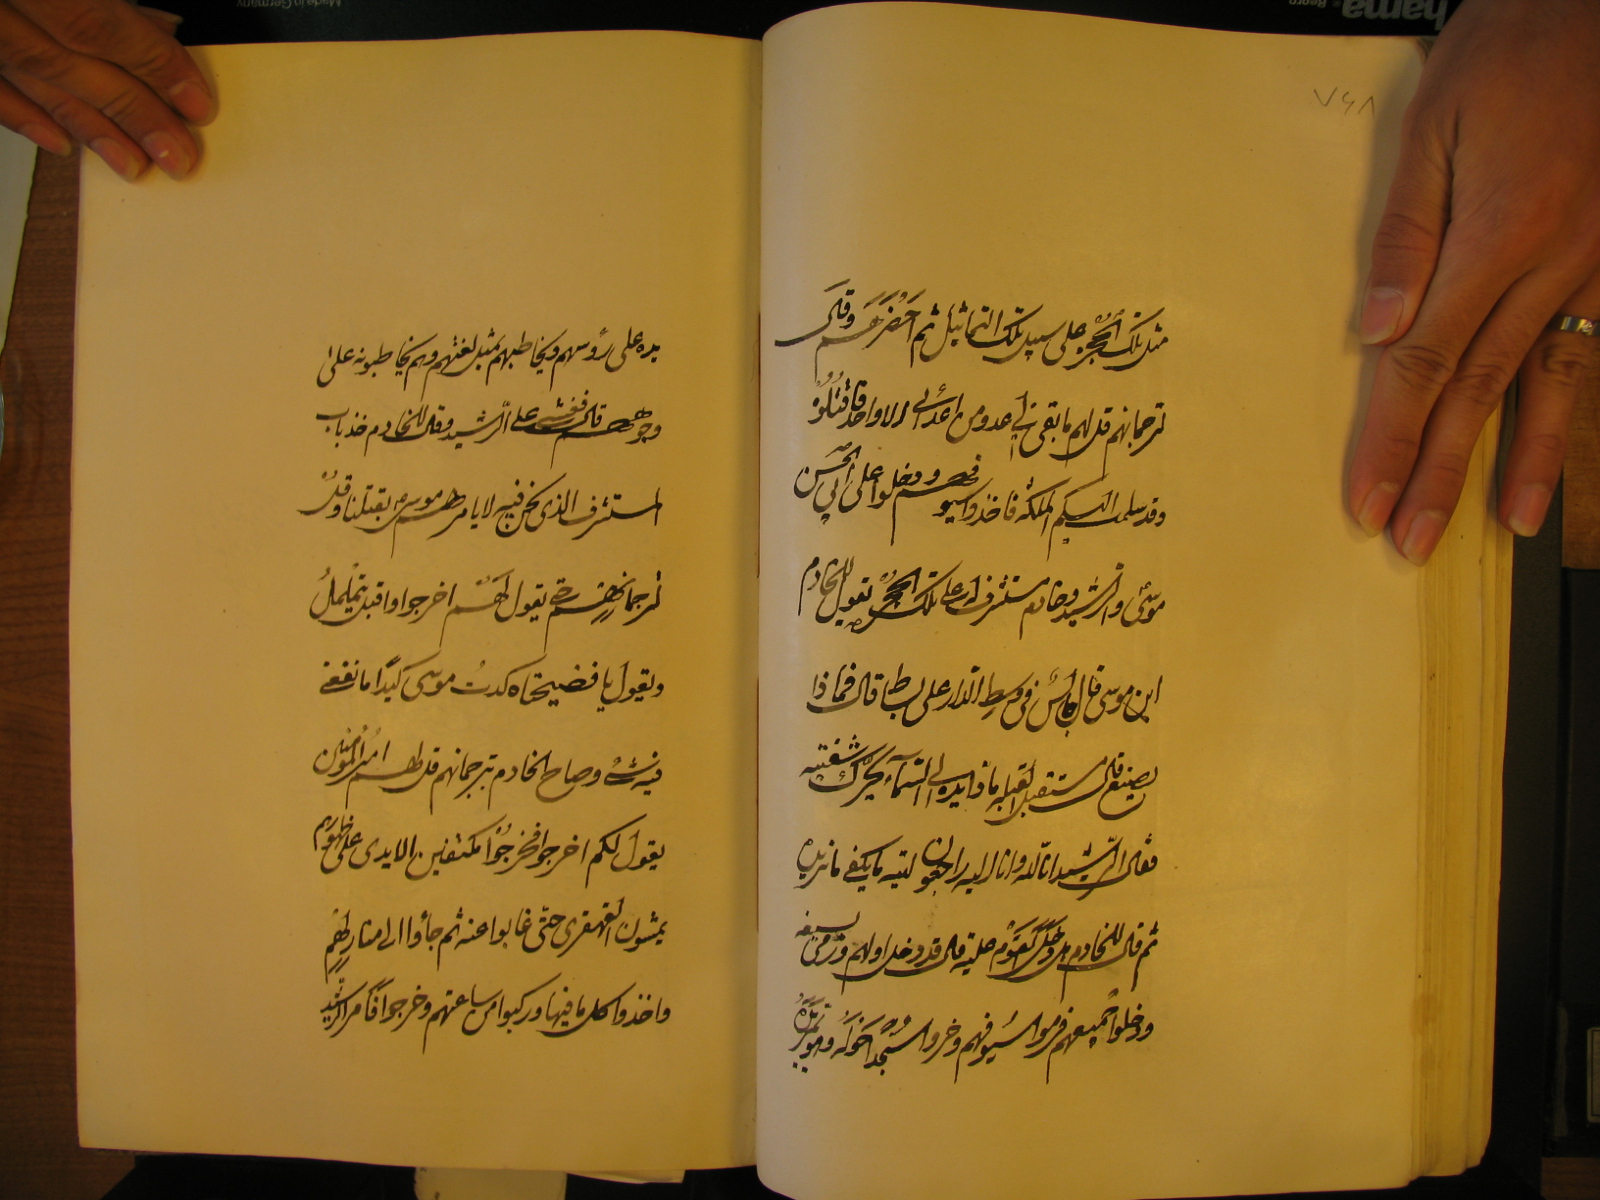 ٧٤٨
مثل تلك الحجرة على سبيل تلك التماثيل ثم احضرهم وقال
لترجمانهم قل لهم ما بقى لى عدو من اعدائى الا واحد فاقتلوه
وقد سلمت اليكم المملكة فاخذوا سيوفهم ودخلوا على ابى الحسن
موسى والرشيد وخادمه مستشرف على تلك الحجرة يقول للخادم
اين موسى قال جالس فى وسط الدار على بساط قال فماذا
يصنع قال مستقبل القبلة مادا يده الى السماء يحرك شفتيه
فقال الرشيد انا لله وانا اليه راجعون ليته ما يكفى ما نريده
ثم قال للخادم هل دخل القوم عليه قال قد دخل اولهم ورمى بسيفه
ودخلوا جميعهم فرموا سيوفهم وخروا سجدا حوله وهو يمر
يده على رؤسهم ويخاطبهم بمثل لغتهم وهم يخاطبونه على
وجوههم قال فغشى على الرشيد وقال للخادم خذ باب
المستشرف الذى نحن فيه لا يامرهم موسى بقتلنا وقل
لترجمانهم حتى يقول لهم اخرجوا واقبل يتململ
ويقول يا فضيحتاه كدت موسى كيدا ما نفع
فيه شىء وصاح الخادم بترجمانهم قل لهم امير المؤمنين
يقول لكم اخرجوا فخرجوا مكتفين الايدى على ظهورهم
يمشون القهقرى حتى غابوا عنه ثم جاؤا الى منازلهم
واخذوا كل ما فيها وركبوا من ساعتهم وخرجوا فامر الرشيد
hama
Made in Germany